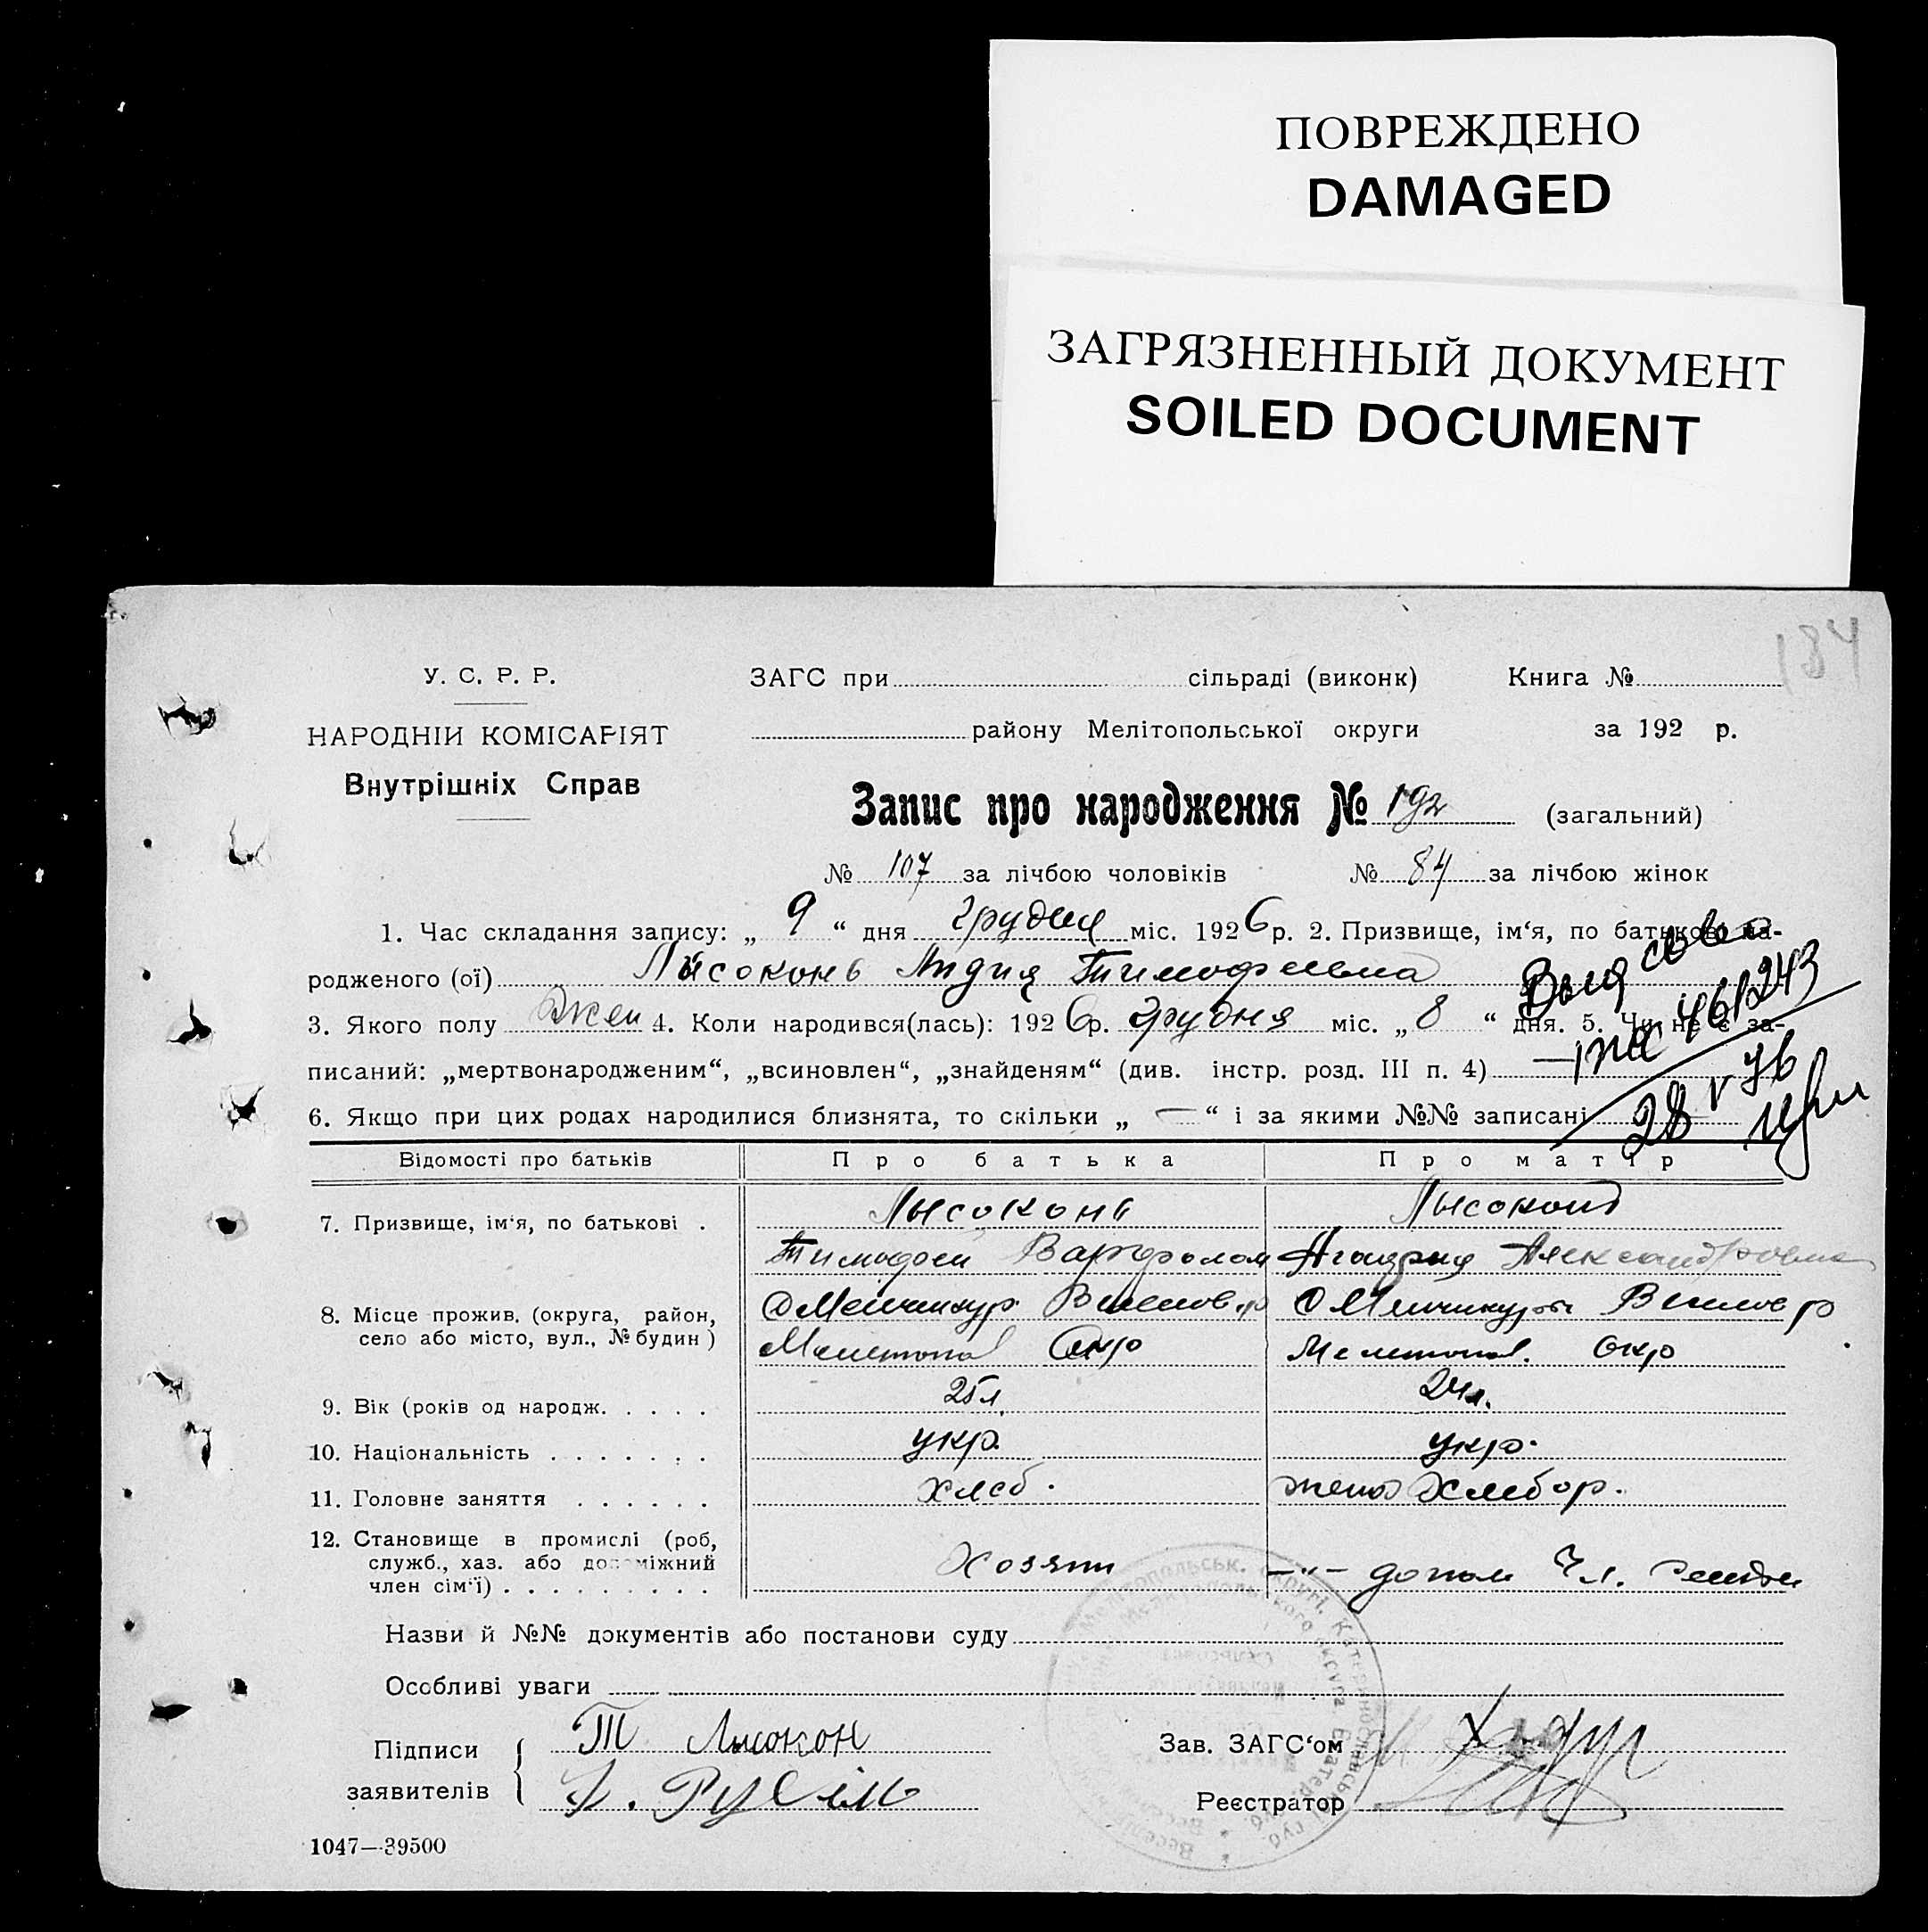 ПОВРЕЖДЕНО
DAMAGED
ЗАГРЯЗНЕННЫЙ ДОКУМЕНТ
SOILED DOCUMENT
184
У. С. Р. Р.
НАРОДНІЙ КОМІСАРІЯТ
Внутрішніх Справ
ЗАГС при сільраді (виконк) Книга №
району Мелітопольської округи за 192 р.
Запис про народження № 192 (загальний)
№ 107 за лічбою чоловіків № 84 за лічбою жінок
1. Час складання запису: „ 9 “ дня грудня міс. 1926 р. 2. Призвище, ім‘я, по батькові на-
родженого (ої) Лысоконь Лидия Тимофеевна
3. Якого полу жен 4. Коли народився(лась): 1926 р. грудня міс. „ 8 “ дня. 5. Чи не є за-
писаний: „мертвонародженим“, „всиновлен“, „знайденям“ (див. інстр. розд. III п. 4) —
6. Якщо при цих родах народилися близнята, то скільки „ — “ і за якими №№ записані
461243
28 V 76
Відомості про батьків Про батька Про матір
7. Призвище, ім‘я, по батькові . Лысоконь Лысоконь
Тимофей Варфолом Александровна
8. Місце прожив. (округа, район,
село або місто, вул., № будин)
Мелитопол Окр Мелитопол. Окр
9. Вік (років од народж. . . . . 25 л. 24 л.
10. Національність . . . . . . . укр. укр.
11. Головне заняття . . . . . . хлеб. жена Хлебор.
12. Становище в промислі (роб,
служб., хаз. або допоміжний
член сім‘ї) . . . . . . . . . Хозяин —„— допом чл.
Назви й №№ документів або постанови суду
Особливі уваги
Підписи
заявителів
Т Лисокон
Зав. ЗАГС‘ом
Реєстратор
1047—39500